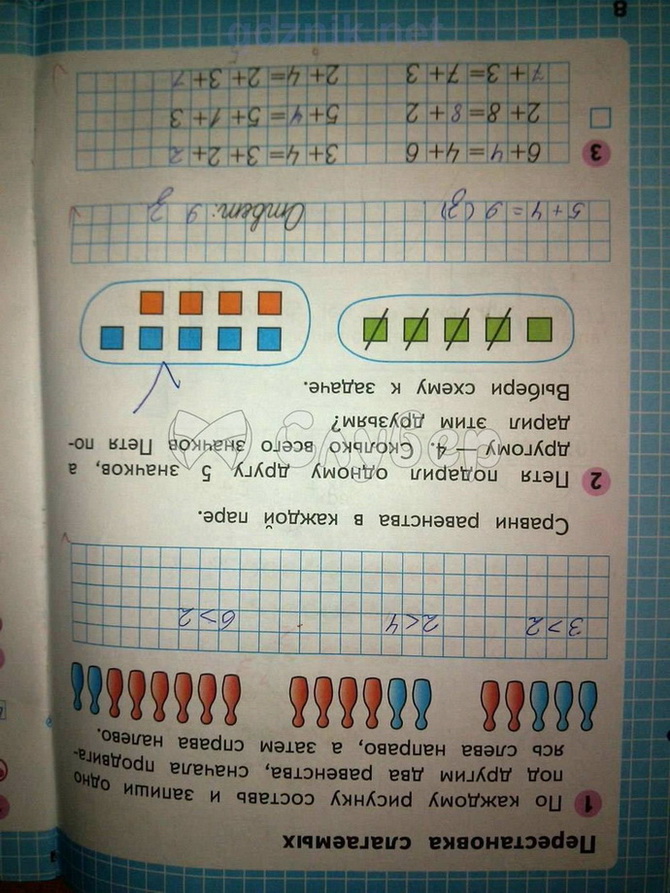 Перестановка слагаемых
1 По каждому рисунку составь и запиши одно
под другим два равенства, сначала продвига-
ясь слева направо, а затем справа налево.
3>2 2<4 6>2
Сравни равенства в каждой паре.
2 Петя подарил одному другу 5 значков, а
другому — 4. Сколько всего значков Петя по-
дарил этим друзьям?
Выбери схему к задаче.
5+4=9 (з) Ответ: 9 з
3 6+4=4+6 3+4=3+2+2
2+8=8+2 5+4=5+1+3
7+3=7+3 2+4=2+3+1
8
Слубер
gdznik.net